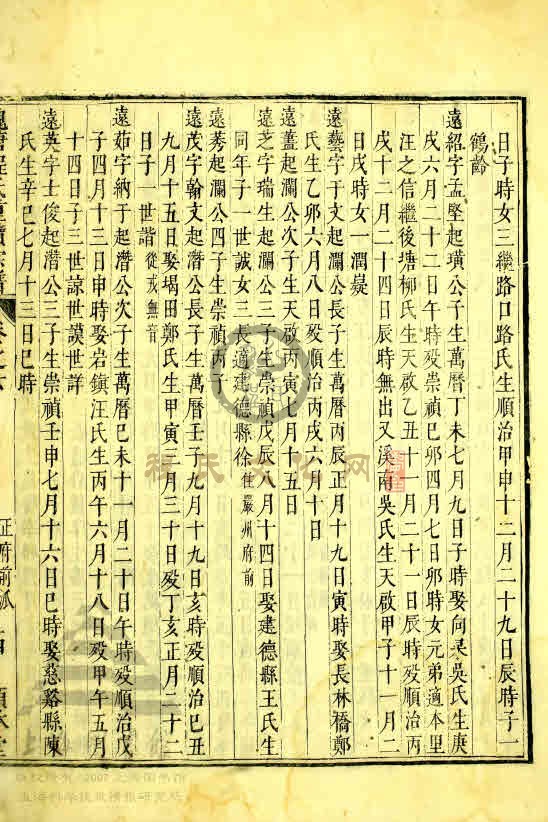 日子時女三繼路口路氏生順治甲申十二月二十九日辰時子一
鶴齡
遠紹字孟堅起璜公子生萬曆丁未七月九日子時娶向杲吳氏生庚
戌六月二十二日午時歿崇禎己卯四月七日卯時女元弟適本里
汪之信繼後塘柳氏生天啟乙丑十一月二十一日辰時歿順治丙
戌十二月二十四日辰時無出又溪南吳氏生天啟甲子十一月二
日戌時女一潤嶷
遠藝字于文起瀾公長子生萬曆丙辰正月十九日寅時娶長林橋鄭
氏生乙卯六月八日歿順治丙戌六月十日
遠藎起瀾公次子生天啟丙寅七月十五日
遠芝字瑞生起瀾公三子生崇禎戊辰八月十四日娶建德縣王氏生
同年子一世誠女三長適建德縣徐住嚴州府前
遠莠起瀾公四子生崇禎丙子
遠茂字翰文起潛公長子生萬曆壬子九月十九日亥時歿順治己丑
九月十五日娶堨田鄭氏生甲寅三月三十日歿丁亥正月二十二
日子一世諧從戎無音
遠茹字納于起潛公次子生萬曆己未十一月二十日午時歿順治戊
子四月十三日申時娶岩鎮汪氏生丙午六月十八日歿甲午五月
十四日子三世諒世謨世詳
遠英字士俊起潛公三子生崇禎壬申七月十六日巳時娶慈谿縣陳
氏生辛巳七月十三日巳時
程氏
宗譜
卷之六
正府前派
程氏文化网